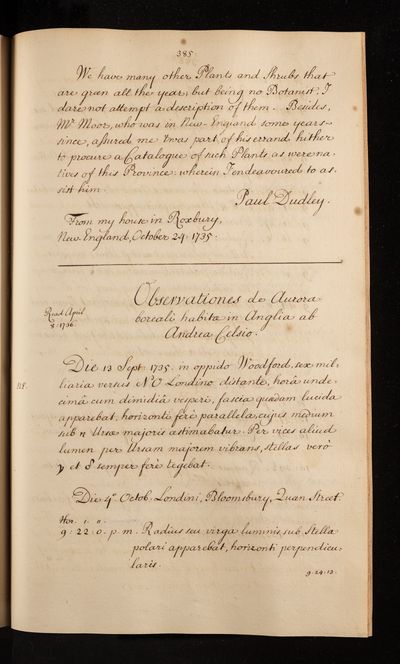 385.
We have many other Plants and Shrubs that
are green all the year, but being no Botanist, I
dare not attempt a description of them. Besides,
Mr. Moor, who was in New-England some years
since, assured me 'twas part of his errand hither
to procure a Catalogue of such Plants as were na-
tives of this Province: wherein I endeavoured to as-
sist him.
Paul Dudley.
From my house in Roxbury,
New England, October 24. 1735.
Observationes de Aurora
boreali habitæ in Anglia ab
Andrea Celsio.
Read April
8. 1736
Die 13 Sept. 1735. in oppido Woodford, sex mil-
liaria versus NO Londino distante, horâ unde-
cimâ cum dimidiâ vesperi, fascia quædam lucida
apparebat, horizonti ferè parallela, cujus medium
sub η Ursæ majoris æstimabatur. Per vices aliud
lumen per Ursam majorem vibrans, stellas verò
γ et δ semper ferè tegebat.
Die 4º Octob. Londini, Bloomsbury, Quan Street.
Hor. ı. ıı.
9: 22: 0. p. m. Radius seu virga luminis, sub Stella
polari apparebat, horizonti perpendicu-
laris.
9. 24. 12.